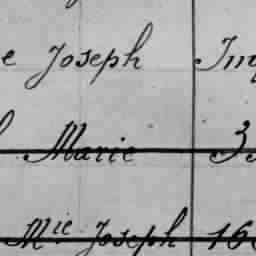 e Joseph
Marie 3
Mie Joseph 16